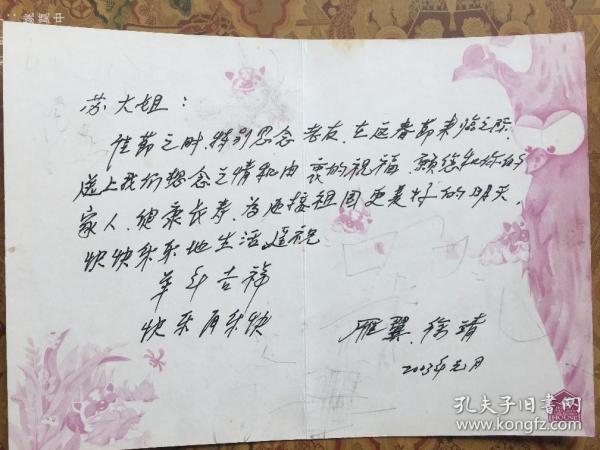 苏大姐：
佳节之时，特别思念老友，在这春节来临之际，
送上我们想念之情和由衷的祝福，愿您和你的
家人，健康长寿，为迎接祖国更美好的明天，
快快乐乐地生活遥祝
羊年吉祥
快乐再乐快
雁翼、徐靖
2003年元月
孔夫子旧书网
www.kongfz.com